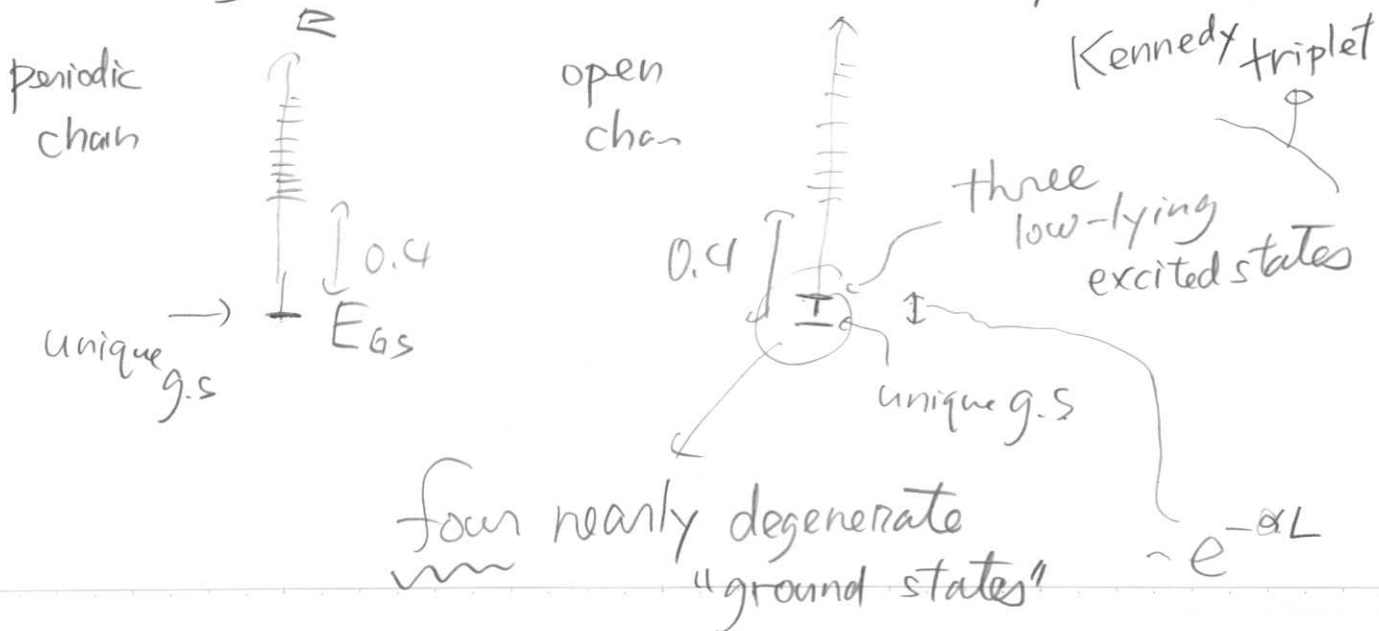 E
periodic
chain
0.4
unique
g.s
E_GS
open
chan
0.4
Kennedy triplet
three
low-lying
excited states
unique g.s
four nearly degenerate
"ground states"
~ e^{-αL}